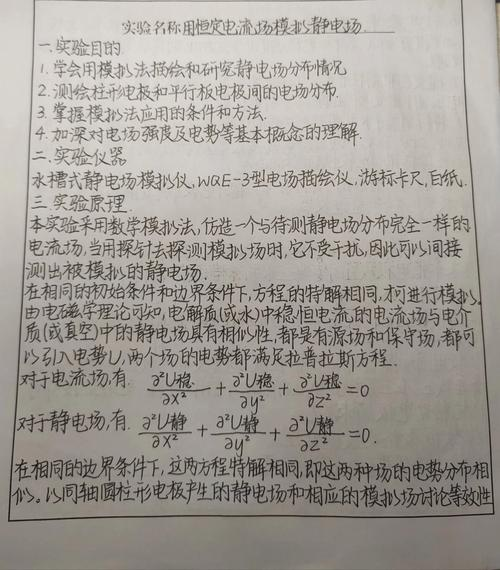 实验名称用恒定电流场模拟静电场.
一.实验目的
1.学会用模拟法描绘和研究静电场分布情况
2.测绘柱形电极和平行板电极间的电场分布.
3.掌握模拟法应用的条件和方法.
4.加深对电场强度及电势等基本概念的理解.
二.实验仪器
水槽式静电场模拟仪,WQE-3型电场描绘仪,游标卡尺,白纸.
三.实验原理.
本实验采用数学模拟法,仿造一个与待测静电场分布完全一样的
电流场,当用探针去探测模拟场时,它不受干扰,因此可以间接
测出被模拟的静电场.
在相同的初始条件和边界条件下,方程的特解相同,才可进行模拟.
由电磁学理论可知,电解质(或水)中稳恒电流的电流场与电介
质(或真空)中的静电场具有相似性,都是有源场和保守场,都可
以引入电势U,两个场的电势都满足拉普拉斯方程.
对于电流场,有. ∂²U稳/∂x² + ∂²U稳/∂y² + ∂²U稳/∂z² =0
对于静电场,有. ∂²U静/∂x² + ∂²U静/∂y² + ∂²U静/∂z² =0.
在相同的边界条件下,这两方程特解相同,即这两种场的电势分布相
似。以同轴圆柱形电极产生的静电场和相应的模拟场讨论等效性